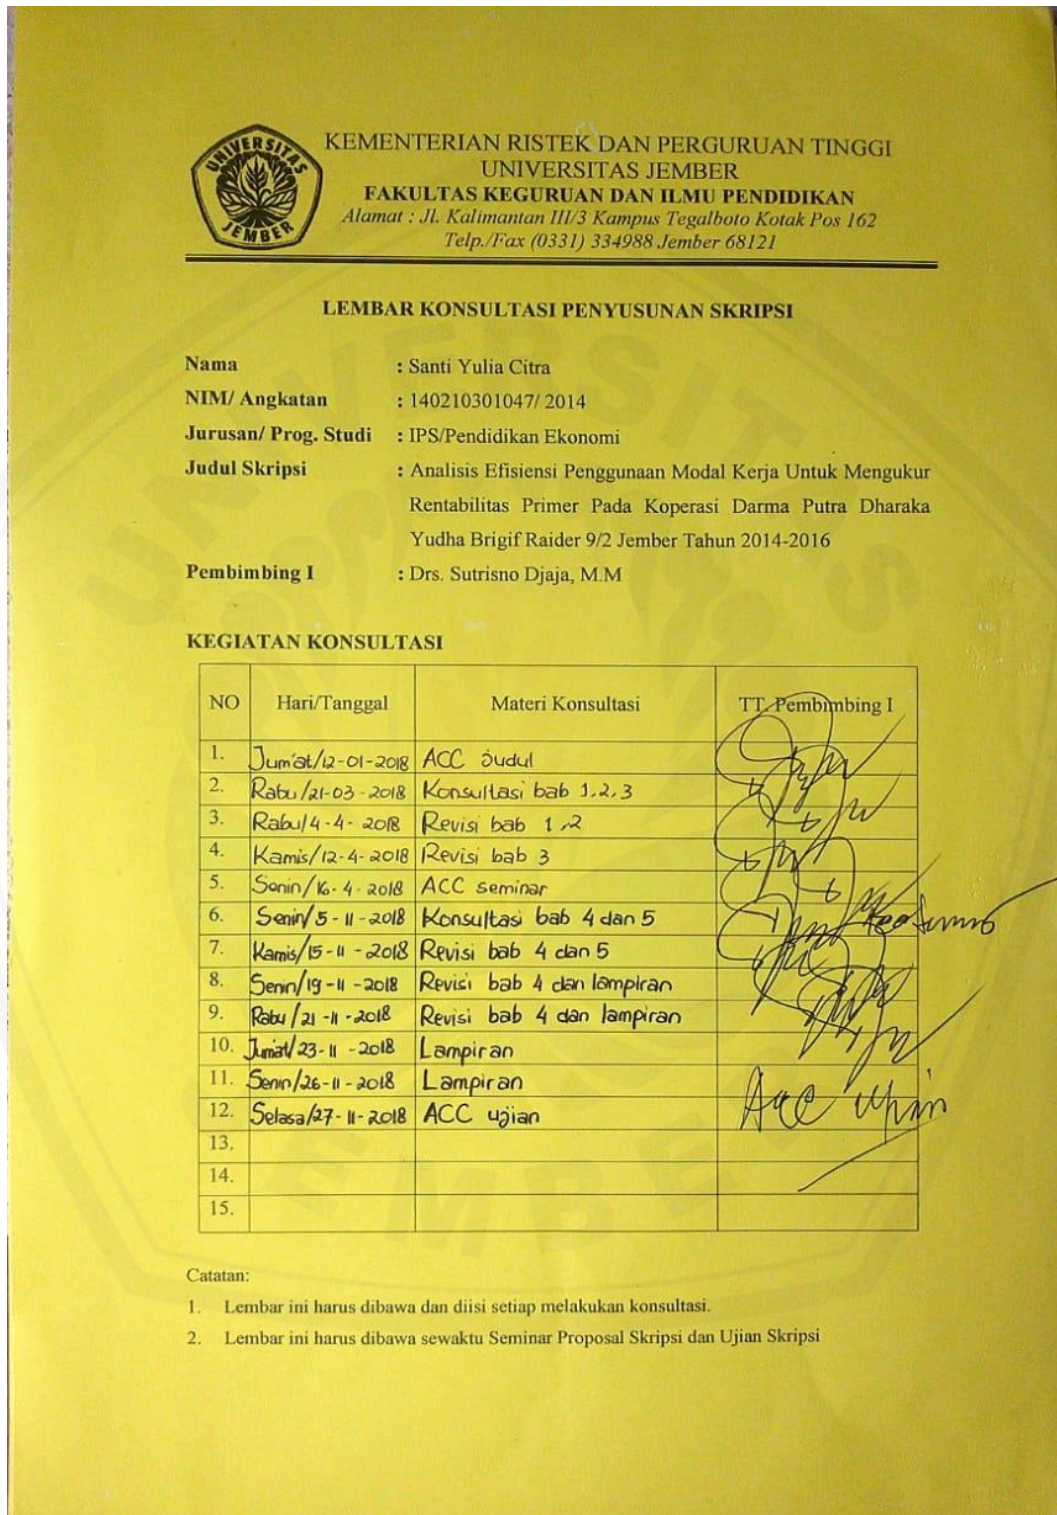 UNIVERSITAS
JEMBER
KEMENTERIAN RISTEK DAN PERGURUAN TINGGI
UNIVERSITAS JEMBER
FAKULTAS KEGURUAN DAN ILMU PENDIDIKAN
Alamat : Jl. Kalimantan III/3 Kampus Tegalboto Kotak Pos 162
Telp./Fax (0331) 334988 Jember 68121
LEMBAR KONSULTASI PENYUSUNAN SKRIPSI
Nama : Santi Yulia Citra
NIM/ Angkatan : 140210301047/ 2014
Jurusan/ Prog. Studi : IPS/Pendidikan Ekonomi
Judul Skripsi : Analisis Efisiensi Penggunaan Modal Kerja Untuk Mengukur
Rentabilitas Primer Pada Koperasi Darma Putra Dharaka
Yudha Brigif Raider 9/2 Jember Tahun 2014-2016
Pembimbing I : Drs. Sutrisno Djaja, M.M
KEGIATAN KONSULTASI
NO Hari/Tanggal Materi Konsultasi TT. Pembimbing I
1. Jum'at/12-01-2018 ACC Judul
2. Rabu/21-03-2018 Konsultasi bab 1,2,3
3. Rabu/4-4-2018 Revisi bab 1,2
4. Kamis/12-4-2018 Revisi bab 3
5. Senin/16-4-2018 ACC seminar
6. Senin/5-11-2018 Konsultasi bab 4 dan 5
7. Kamis/15-11-2018 Revisi bab 4 dan 5
8. Senin/19-11-2018 Revisi bab 4 dan lampiran
9. Rabu/21-11-2018 Revisi bab 4 dan lampiran
10. Jum'at/23-11-2018 Lampiran
11. Senin/26-11-2018 Lampiran
12. Selasa/27-11-2018 ACC ujian Acc Ujian
13.
14.
15.
Catatan:
1. Lembar ini harus dibawa dan diisi setiap melakukan konsultasi.
2. Lembar ini harus dibawa sewaktu Seminar Proposal Skripsi dan Ujian Skripsi